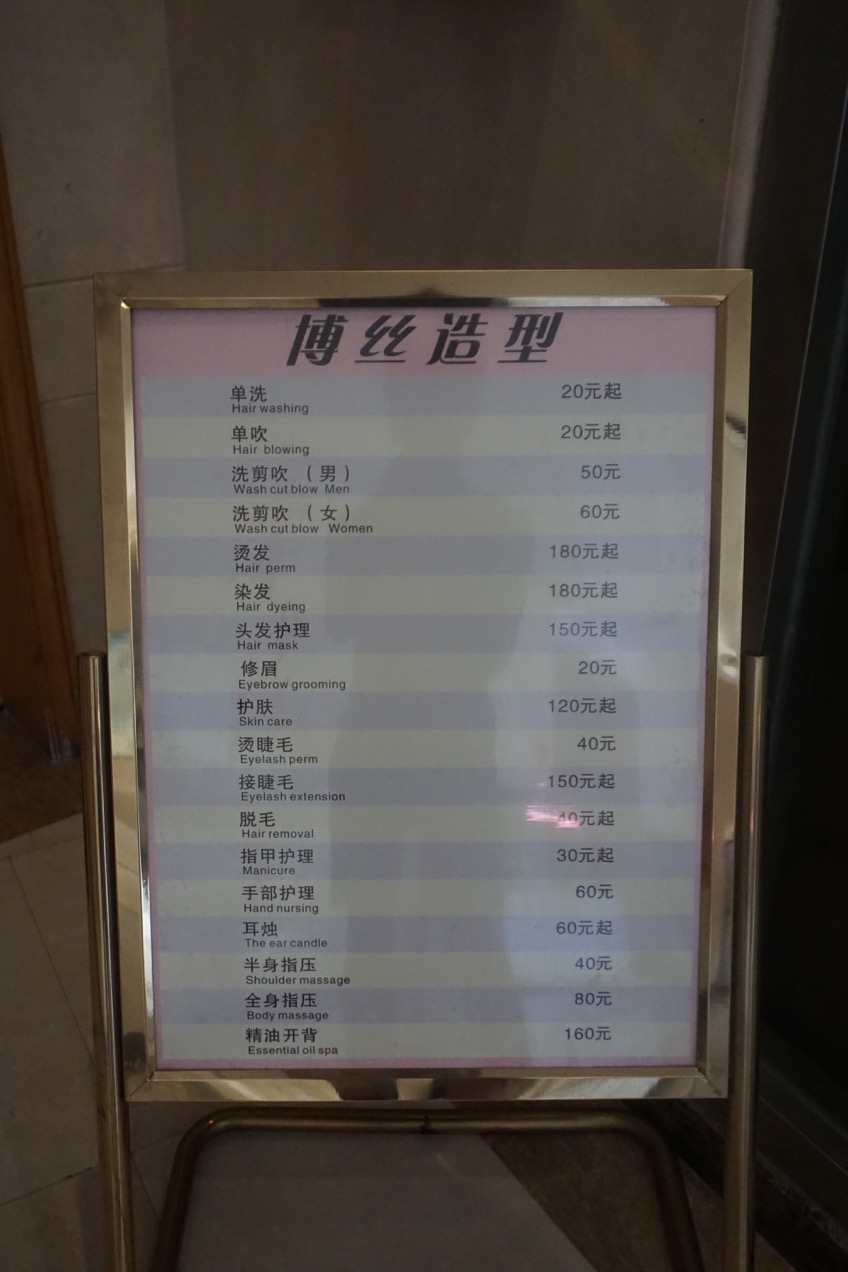 博丝造型
单洗 20元起
Hair washing
单吹 20元起
Hair blowing
洗剪吹 （男） 50元
Wash cut blow Men
洗剪吹 （女） 60元
Wash cut blow Women
烫发 180元起
Hair perm
染发 180元起
Hair dyeing
头发护理 150元起
Hair mask
修眉 20元
Eyebrow grooming
护肤 120元起
Skin care
烫睫毛 40元
Eyelash perm
接睫毛 150元起
Eyelash extension
脱毛 40元起
Hair removal
指甲护理 30元起
Manicure
手部护理 60元
Hand nursing
耳烛 60元起
The ear candle
半身指压 40元
Shoulder massage
全身指压 80元
Body massage
精油开背 160元
Essential oil spa